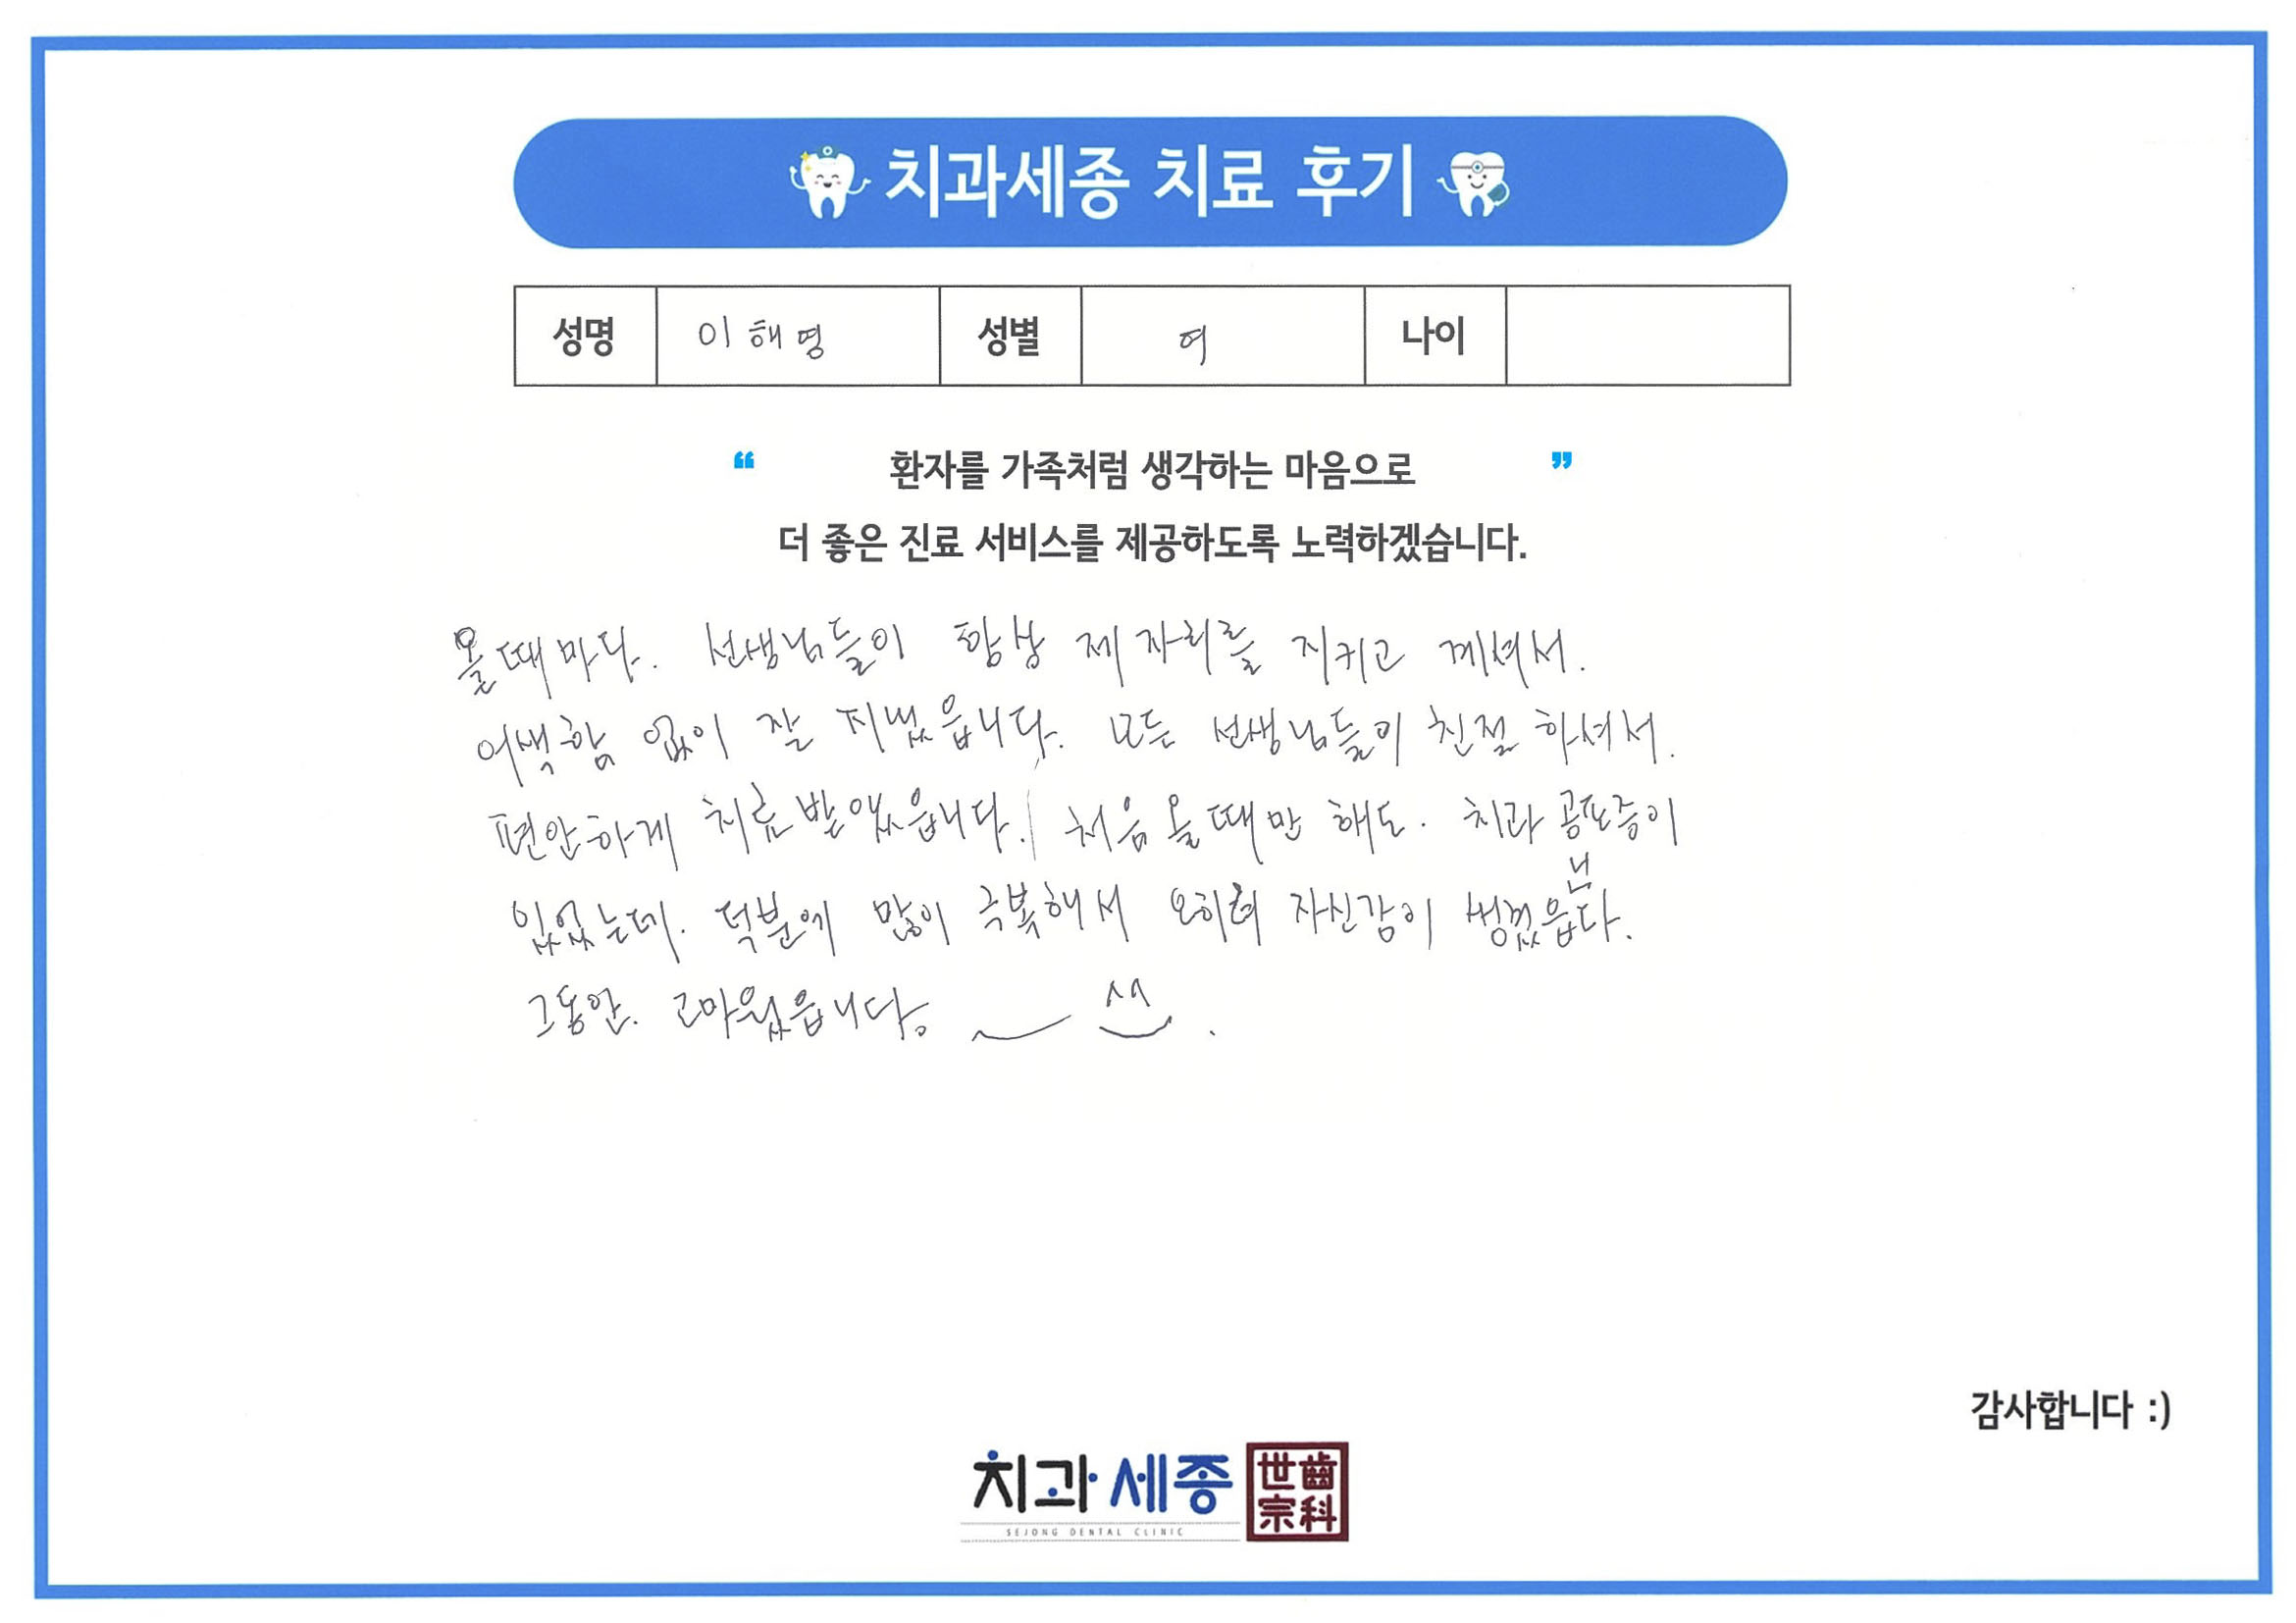 치과세종 치료 후기
성명 이해영 성별 여 나이
“ 환자를 가족처럼 생각하는 마음으로 ”
더 좋은 진료 서비스를 제공하도록 노력하겠습니다.
올때마다. 선생님들이 항상 제자리를 지키고 계셔서.
어색함 없이 잘 지냈읍니다. 모든 선생님들이 친절하셔서.
편안하게 치료받았읍니다. 처음 올때만 해도. 치과 공포증이
있었는데. 덕분에 많이 극복해서 오히려 자신감이 생겼읍니다.
그동안. 고마웠읍니다. ^^ .
감사합니다 :)
치과세종 世齒
宗科
SEJONG DENTAL CLINIC